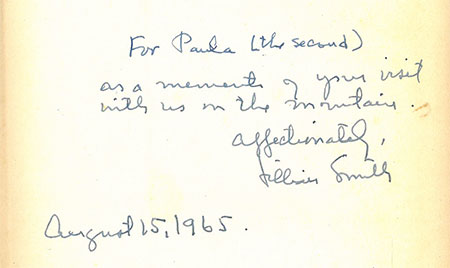 For Paula (the second)
as a memento of your visit
with us on the mountain.
Affectionately,
Lillian Smith
August 15, 1965.